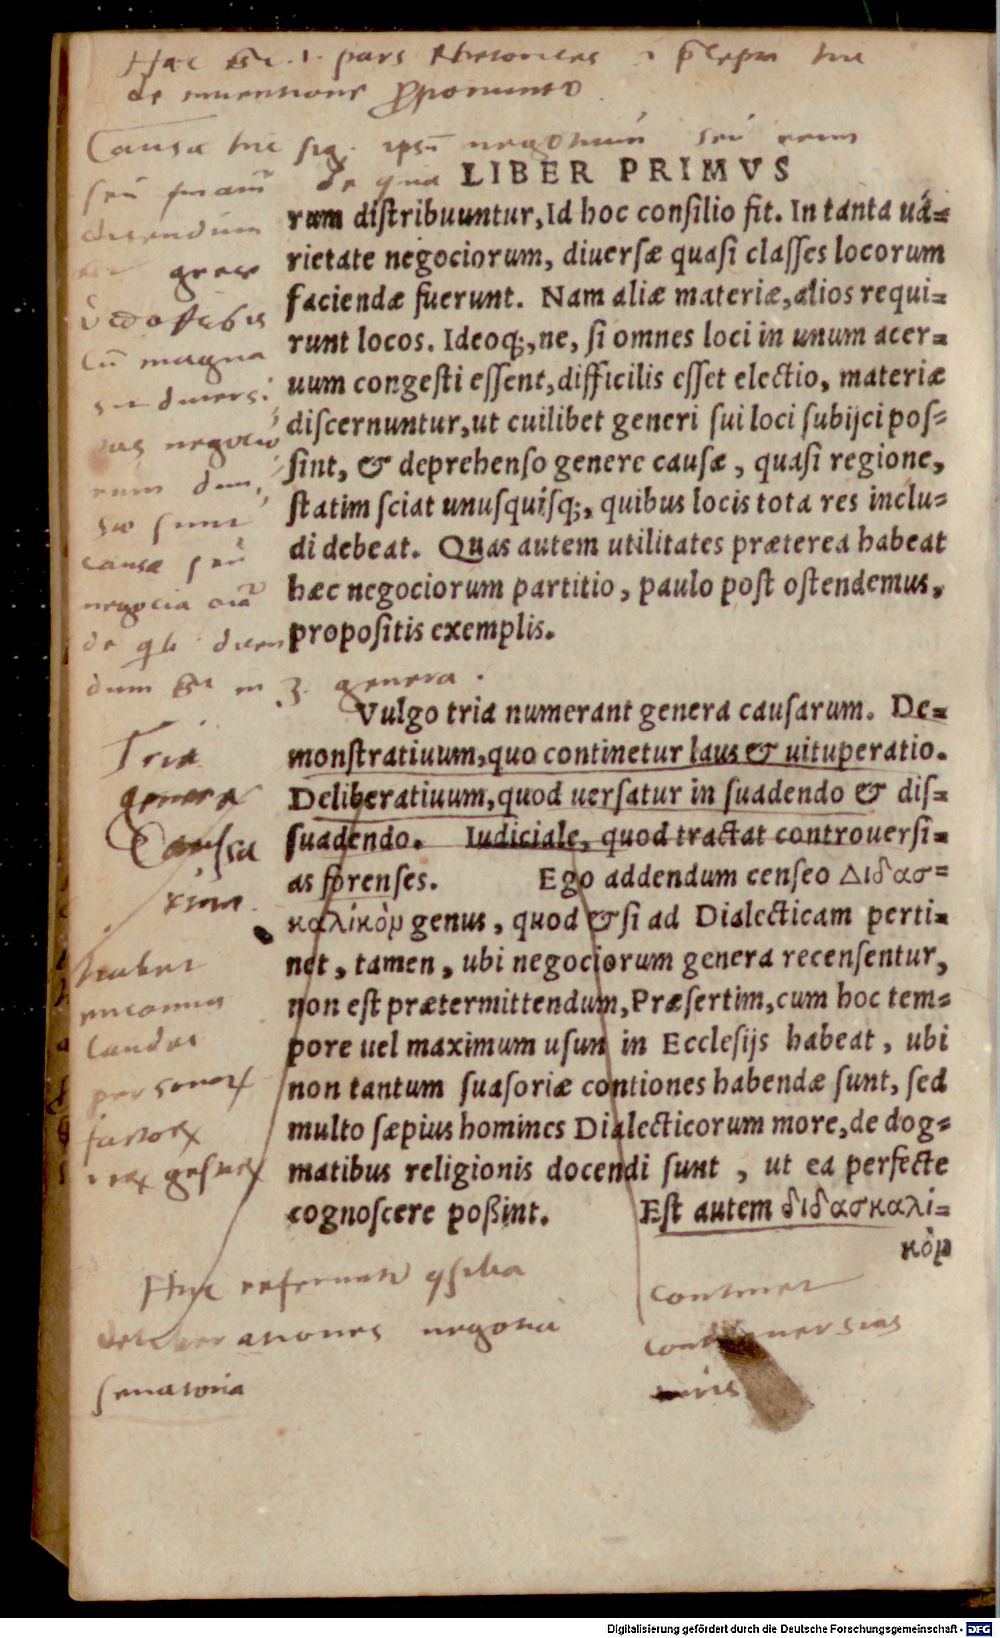 Hæc est 1. pars Rhetorices
de inventione proponunt
Causæ hic sig. ipsū negotium seu rem
seu
de qua LIBER PRIMVS
dicendum
ὑπόθεσις
cū magna
sit diversi
tas negotio
rum
sw sunt
causæ seu
negocia
de qb dicen
dum est in 3. genera.
rum diſtribuuntur, Id hoc conſilio fit. In tanta ua=
rietate negociorum, diuerſæ quaſi claſſes locorum
faciendæ fuerunt. Nam aliæ materiæ, alios requi=
runt locos. Ideoq;, ne, ſi omnes loci in unum acer=
uum congeſti eſſent, difficilis eſſet electio, materiæ
diſcernuntur, ut cuilibet generi ſui loci ſubijci poſ=
ſint, & deprehenſo genere cauſæ, quaſi regione,
ſtatim ſciat unuſquiſq;, quibus locis tota res inclu=
di debeat. Quas autem utilitates præterea habeat
hæc negociorum partitio, paulo poſt oſtendemus,
propoſitis exemplis.
Tria
genera
Causa
rum
Vulgo tria numerant genera cauſarum. De=
monſtratiuum, quo continetur laus & uituperatio.
Deliberatiuum, quod uerſatur in ſuadendo & diſ=
ſuadendo. Iudiciale, quod tractat controuerſi=
as forenſes. Ego addendum cenſeo Διδασ=
καλικὸν genus, quod & ſi ad Dialecticam perti=
net, tamen, ubi negociorum genera recenſentur,
non eſt prætermittendum, Præſertim, cum hoc tem=
pore uel maximum uſum in Eccleſijs habeat, ubi
non tantum ſuaſoriæ contiones habendæ ſunt, ſed
multo ſæpius homines Dialecticorum more, de dog=
matibus religionis docendi ſunt, ut ea perfecte
cognoſcere poßint. Eſt autem διδασκαλι=
κὸν
habet
encomia
laudes
personarꝝ
factorꝝ
rerꝝ gestarꝝ
Huc referunt consilia
deliberationes negotia
senatoria
continet
controversias
iuris
Digitalisierung gefördert durch die Deutsche Forschungsgemeinschaft - DFG